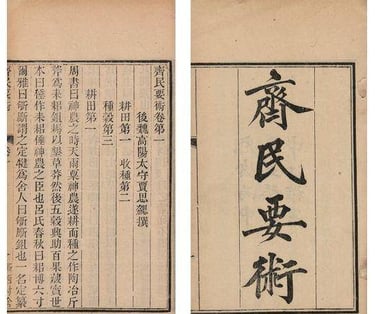 齊民要術
齊民要術卷第一
後魏高陽太守賈思勰撰
耕田第一 收種第二
種穀第三
耕田第一
周書曰神農之時天雨粟神農遂耕而種之作陶冶斤
斧為耒耜鉏耨以墾草莽然後五穀興助百果藏實世
本曰倕作耒耜倕神農之臣也呂氏春秋曰耜博六寸
爾雅曰斪斸謂之定犍為舍人曰斪斸鉏也一名定纂